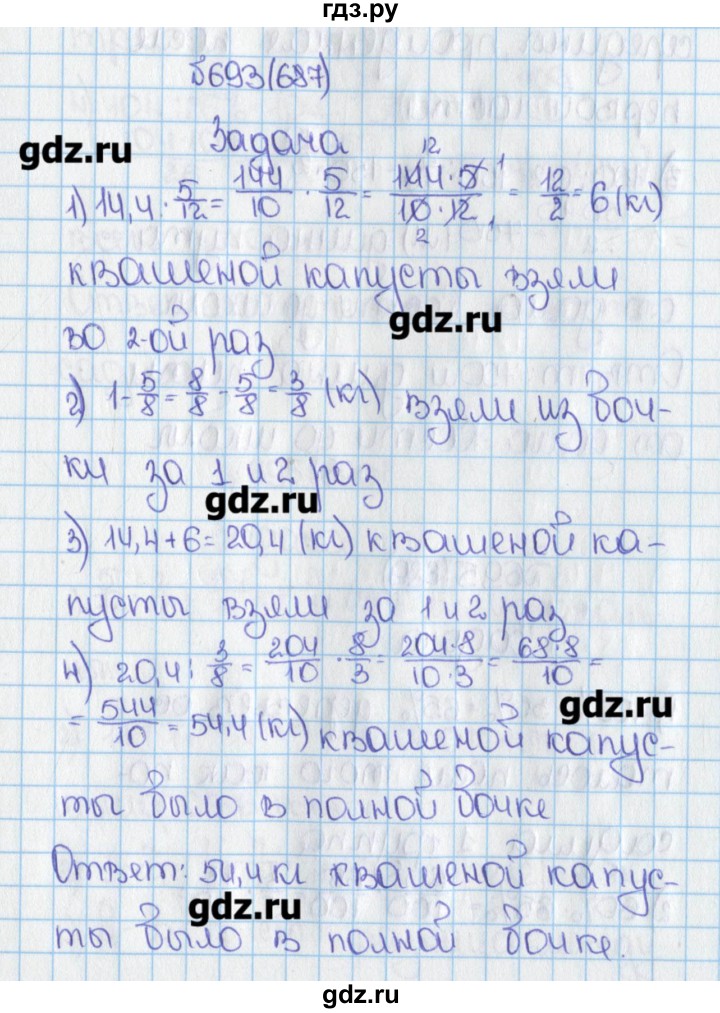 гдз.ру
№693(687)
Задача
gdz.ru
1) 14,4 · 5/12 = 144/10 · 5/12 = 144·5/10·12 = 12/2 = 6 (кг)
12 1 2 1
квашеной капусты взяли
gdz.ru
во 2-ой раз
2) 1 - 5/8 = 8/8 - 5/8 = 3/8 (кг) взяли из боч-
ки за 1 и 2 раз
gdz.ru
3) 14,4 + 6 = 20,4 (кг) квашеной ка-
пусты взяли за 1 и 2 раз
4) 20,4 : 3/8 = 204/10 · 8/3 = 204·8/10·3 = 68·8/10 =
gdz.ru
= 544/10 = 54,4 (кг) квашеной капус-
ты было в полной бочке
Ответ: 54,4 кг квашеной капус-
gdz.ru
ты было в полной бочке.
gdz.ru